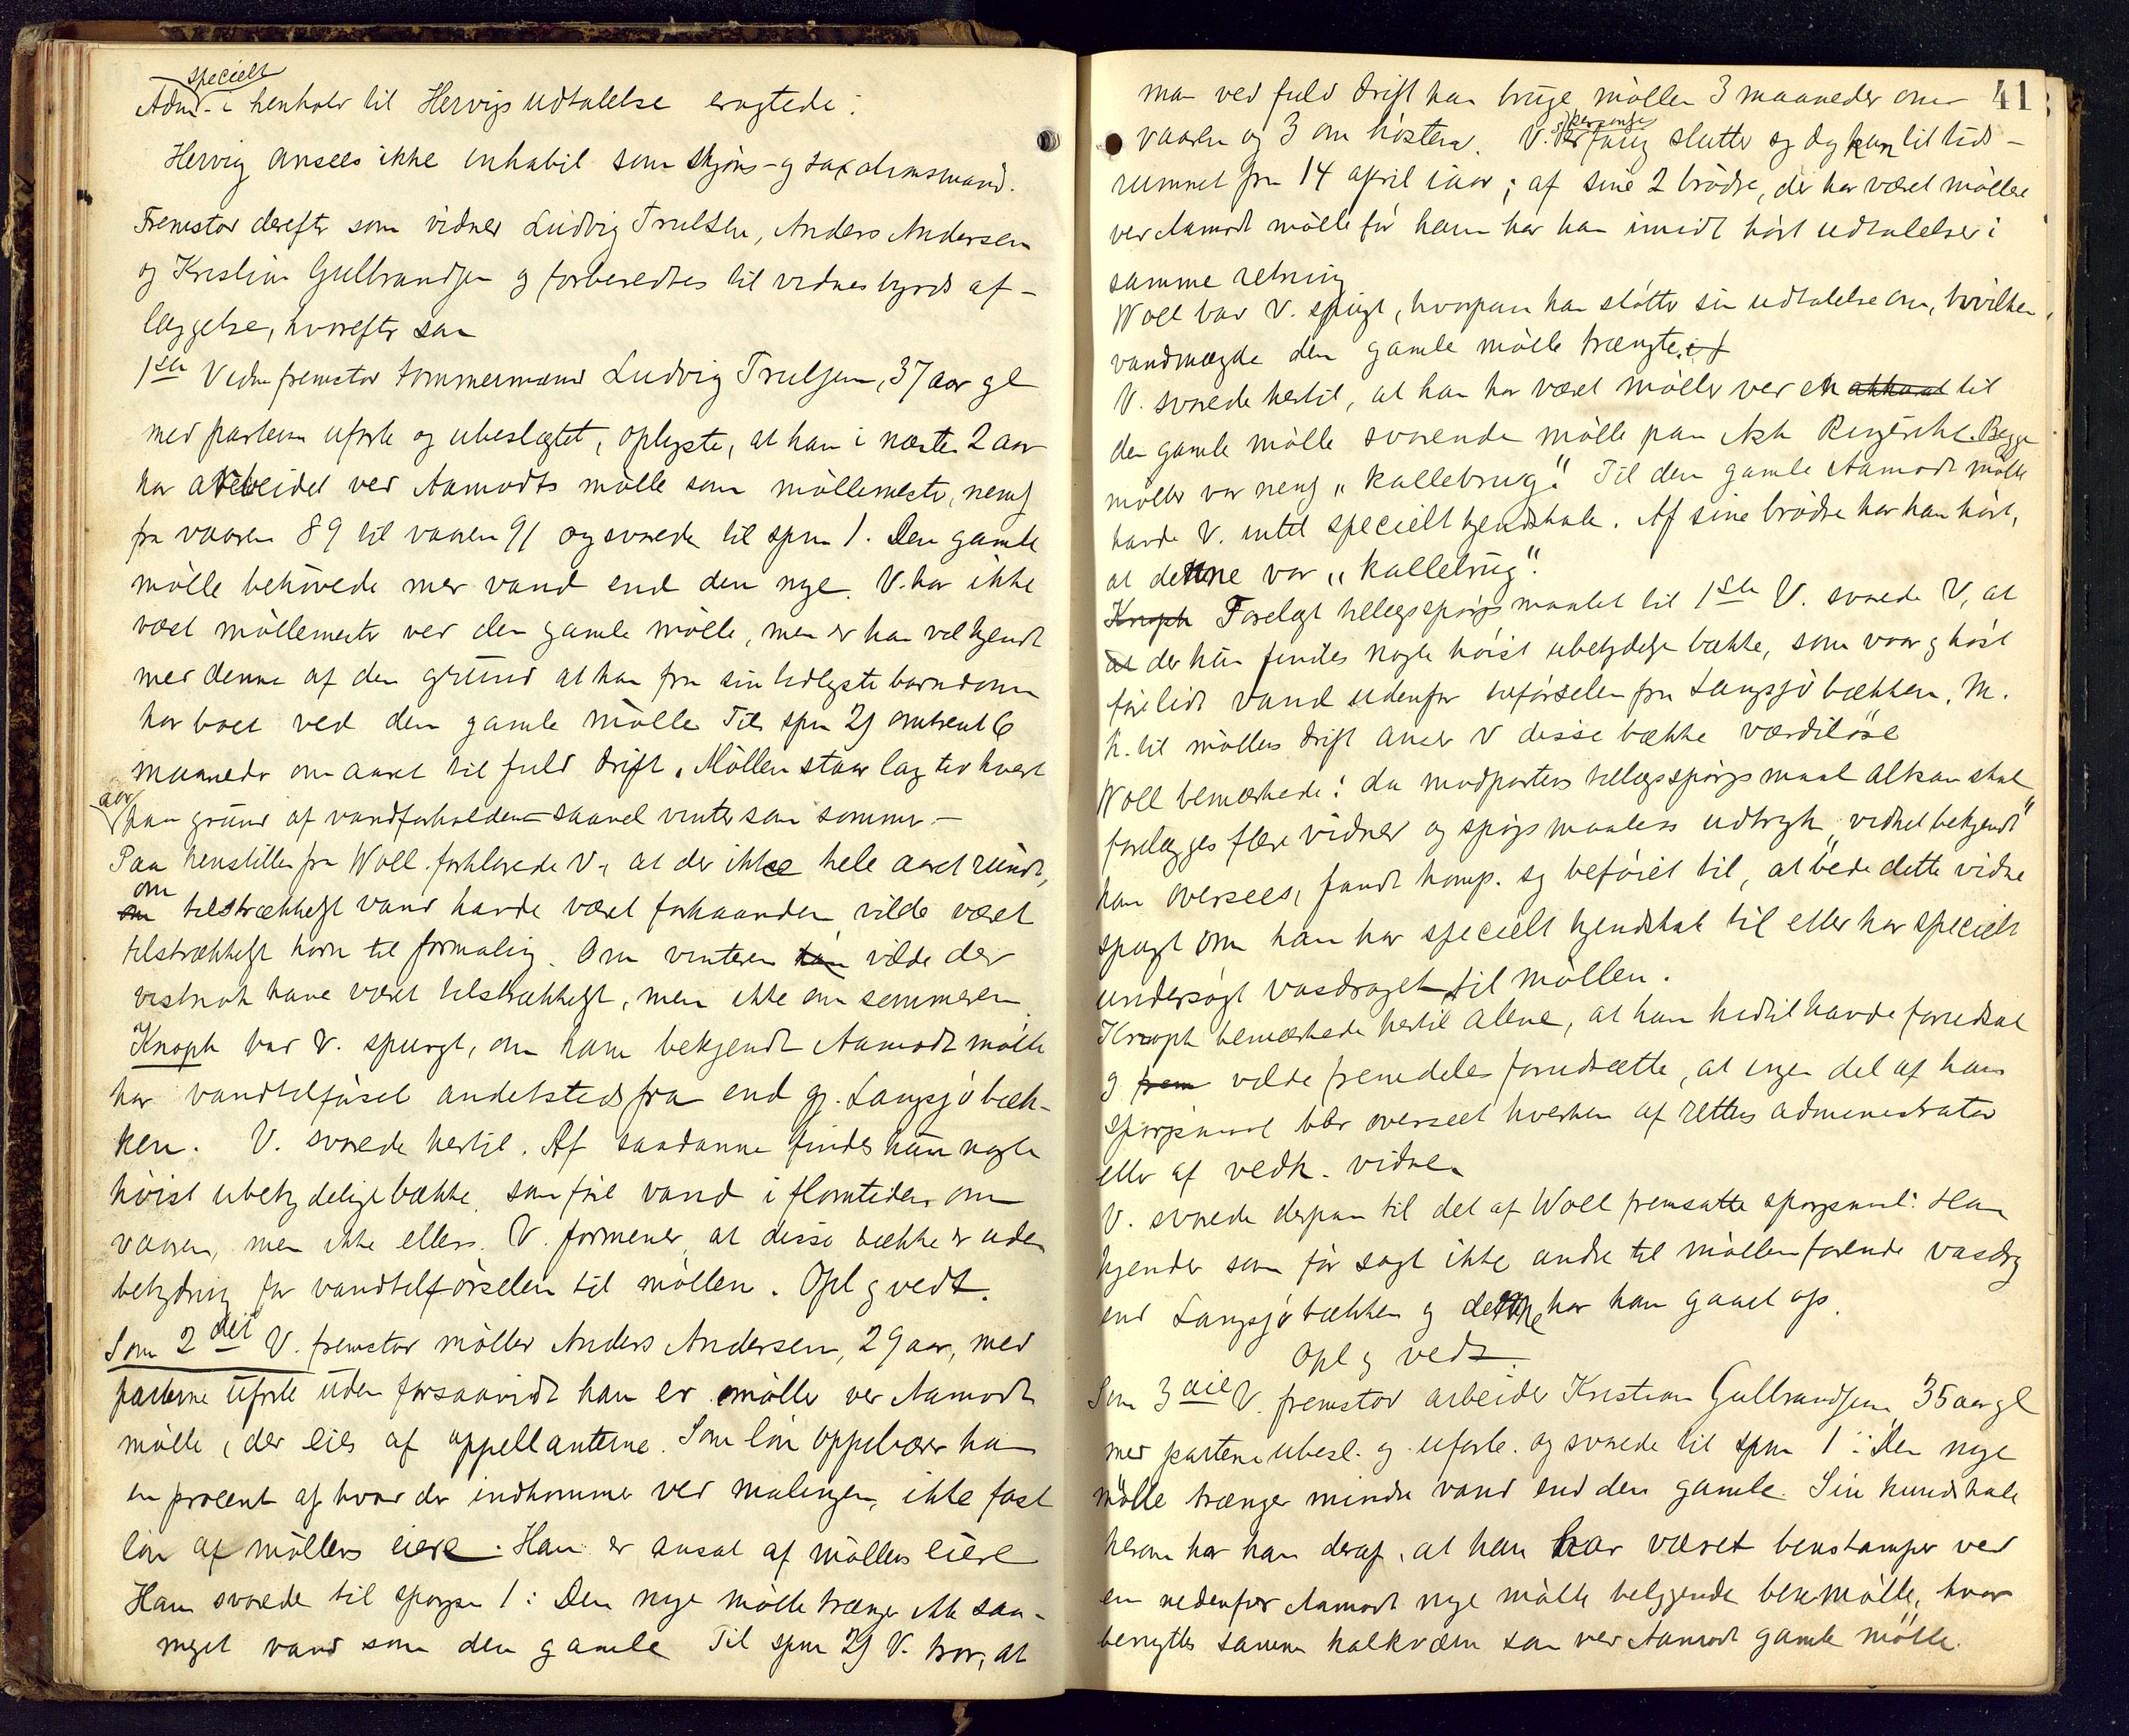 specielt
Adm. i henhold til Hervigs udtalelse eragtede:
Hervig ansees ikke inhabil som skjøns- og taxationsmand.
Fremstod derefter som vidner Ludvig Trulsen, Anders Andersen
og Kristian Gulbrandsen og forberedtes til vidnesbyrds af-
læggelse, hvorefter som
1ste Vidne fremstod tømmermand Ludvig Trulsen, 37 aar gl
med parterne uforb. og ubeslægtet, oplyste, at han i næsten 2 aar
har arbeidet ved Aamodts mølle som møllemester, neml
fra vaaren 89 til vaaren 91 og svarede til spm 1. Den gamle
mølle behøvede mer vand end den nye. V. har ikke
været møllemester ved den gamle mølle, men er han vel kjendt
med denne af den grund at han fra sin tidligste barndom
har boet ved den gamle mølle Til spm 2) omtrent 6
maaneder om aaret til fuld drift. Møllen staar lagtid hvert
aar
paa grund af vandforholdene saavel vinter som sommer.-
Paa henstillen fra Woll forklarede V., at der ikke hele aaret rundt,
om
om tilstrækkeligt vand havde været forhaanden vilde været
tilstrækkeligt korn til formaling. Om vinteren kan vilde der
vistnok have været tilstrækkeligt, men ikke om sommeren.
Knoph bad V. spurgt, om ham bekjendt Aamodt mølle
har vandtilførsel andetstedsfra end gj. Langsjøbæk-
ken. V. svarede hertil. Af saadanne findes kun nogle
høist ubetydelige bække, som før vand i flomtiden om
vaaren, men ikke ellers. V. formener, at disse bække er uden
betydning for vandtilførselen til møllen. Opl og vedt.
Som 2det V. fremstod møller Anders Andersen, 29 aar, med
parterne uforb uden forsaavidt han er møller ved Aamodt
mølle, der eies af appellanterne. Som løn oppebærer han
en procent af hvad der indkommer ved malingen, ikke fast
løn af møllens eiere. Han er ansat af møllens eiere
Han svarede til spørgsm 1: Den nye mølle trænger ikke saa-
meget vand som den gamle Til spm 2) V. tror, at
41
man ved fuld drift kan bruge møllen 3 maaneder om
vaaren og 3 om høsten. V.s personlige
erfaring slutter sig dog kun til tids-
rummet fra 14 april iaar; af sine 2 brødre, der har været møllere
ved Aamodt mølle før ham har han imidt hørt udtalelser i
samme retning
Woll bad V. spurgt, hvorpaa han støtter sin udtalelse om, hvilken
vandmægde den gamle mølle trængte.
V. svarede hertil, at han har været møller ved en akkurat til
den gamle mølle svarende mølle paa Ask Ringerike. Begge
møller var neml "kallebrug". Til den gamle Aamodt mølle
havde V. intet specielt kjendskab. Af sine brødre har han hørt,
at denne var "kallebrug".
Knoph Forelagt tillægsspørgsmaalet til 1ste V. svarede V, at
at der kun findes nogle høist ubetydelige bække, som vaar og høst
før lidt vand udenfor tilførselen fra Langsjøbækken. M.
h. til møllens drift anser V disse bække værdiløse
Woll bemærkede: da modpartens tillægsspørgsmaal altsaa skal
forelægges flere vidner og spørgsmaalets udtryk "vidnet bekjendt"
kan oversees, fandt komp. sig beføiet til, at bede dette vidne
spurgt om han har specielt kjendskab til eller har specielt
undersøgt vasdraget til møllen.
Knoph bemærkede hertil alene, at han hidtil havde forudsat
og frem vilde fremdeles forudsætte, at ingen del af hans
spørgsmaal blir overseet hverken af rettens administrator
eller af vedk. vidne
V. svarede derpaa til det af Woll fremsatte spørgsmaal: Han
kjender som før sagt ikke andre til møllen førende vasdrag
end Langsjøbækken og denne har han gaaet op.
Opl og vedt.
Som 3die V. fremstod arbeider Kristian Gulbrandsen 35 aar gl
med parterne ubesl. og uforb. og svarede til spm 1: Den nye
mølle trænger mindre vand end den gamle. Sin kundskab
herom har han deraf, at han har været benstamper ved
en nedenfor Aamodt nye mølle beliggende benmølle, hvor
benyttes samme kalkværn som ved Aamodt gamle mølle.